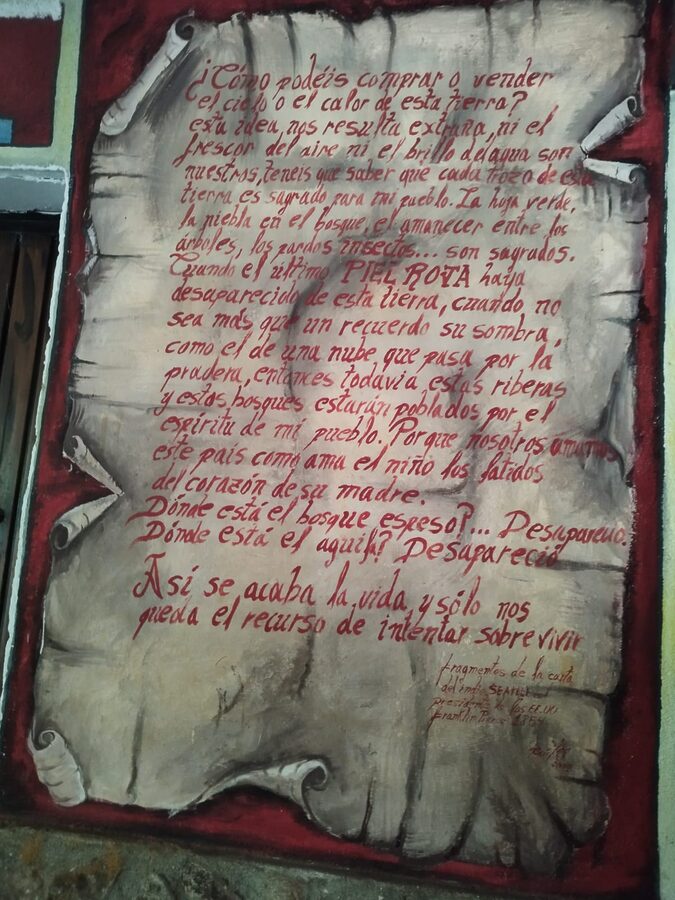 ¿Cómo podéis comprar o vender
el cielo o el calor de esta tierra?
esta idea, nos resulta extraña, ni el
frescor del aire ni el brillo del agua son
nuestros, teneis que saber que cada trozo de esta
tierra, es sagrado para mi pueblo. La hoja verde,
la niebla en el bosque, el amanecer entre los
árboles, los pardos insectos... son sagrados.
Cuando el último PIEL ROTA haya
desaparecido de esta tierra, cuando no
sea más que un recuerdo su sombra,
como el de una nube que pasa por la
pradera, entonces todavia estas riberas
y estos bosques estarán poblados por el
espíritu de mi pueblo. Porque nosotros amamos
este pais como ama el niño los latidos
del corazón de su madre.
Dónde está el bosque espeso?... Desapareció.
Dónde está el aguila? Desapareció
Así se acaba la vida y sólo nos
queda el recurso de intentar sobrevivir
fragmentos de la carta
del indio SEATTLE al
presidente de los EE.UU
Franklin Pierce 1854